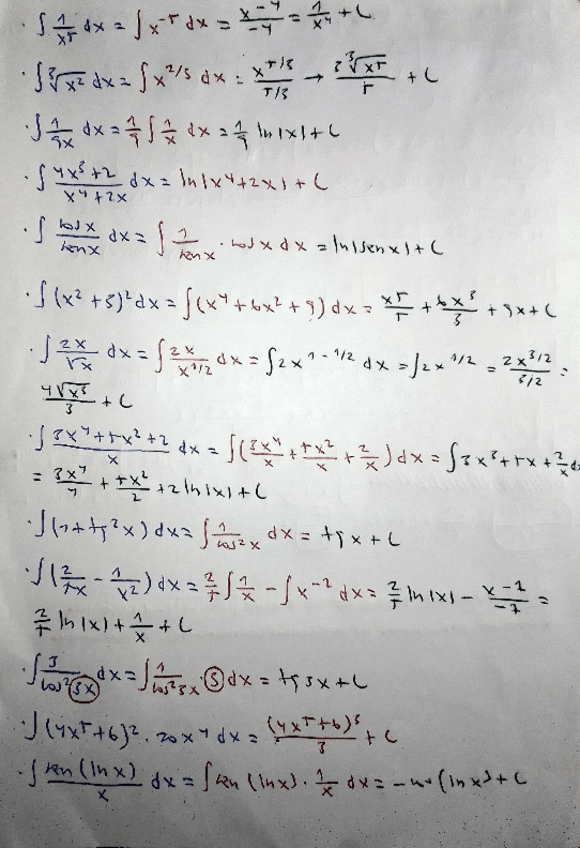 · ∫ 1/x⁵ dx = ∫ x⁻⁵ dx = x⁻⁴/-4 = 1/x⁴ + C
· ∫ ∛x² dx = ∫ x^(2/3) dx = x^(5/3)/(5/3) → 3∛x⁵/5 + C
· ∫ 1/9x dx = 1/9 ∫ 1/x dx = 1/9 ln|x| + C
· ∫ (4x³+2)/(x⁴+2x) dx = ln|x⁴+2x| + C
· ∫ cosx/senx dx = ∫ 1/senx · cosx dx = ln|senx| + C
· ∫ (x²+3)² dx = ∫ (x⁴+6x²+9) dx = x⁵/5 + 6x³/3 + 9x + C
· ∫ 2x/√x dx = ∫ 2x/x^(1/2) dx = ∫ 2x^(1-1/2) dx = ∫ 2x^(1/2) = 2x^(3/2)/(3/2) =
4√x³/3 + C
· ∫ (3x⁴+5x²+2)/x dx = ∫ (3x⁴/x + 5x²/x + 2/x) dx = ∫ 3x³+5x+2/x dx
= 3x⁴/4 + 5x²/2 + 2 ln|x| + C
· ∫ (1+tg²x) dx = ∫ 1/cos²x dx = tgx + C
· ∫ (2/5x - 1/x²) dx = 2/5 ∫ 1/x - ∫ x⁻² dx = 2/5 ln|x| - x⁻¹/-1 =
2/5 ln|x| + 1/x + C
· ∫ 3/cos²3x dx = ∫ 1/cos²3x · 3 dx = tg3x + C
· ∫ (4x⁵+6)² · 20x⁴ dx = (4x⁵+6)³/3 + C
· ∫ sen(lnx)/x dx = ∫ sen(lnx) · 1/x dx = -cos(lnx) + C